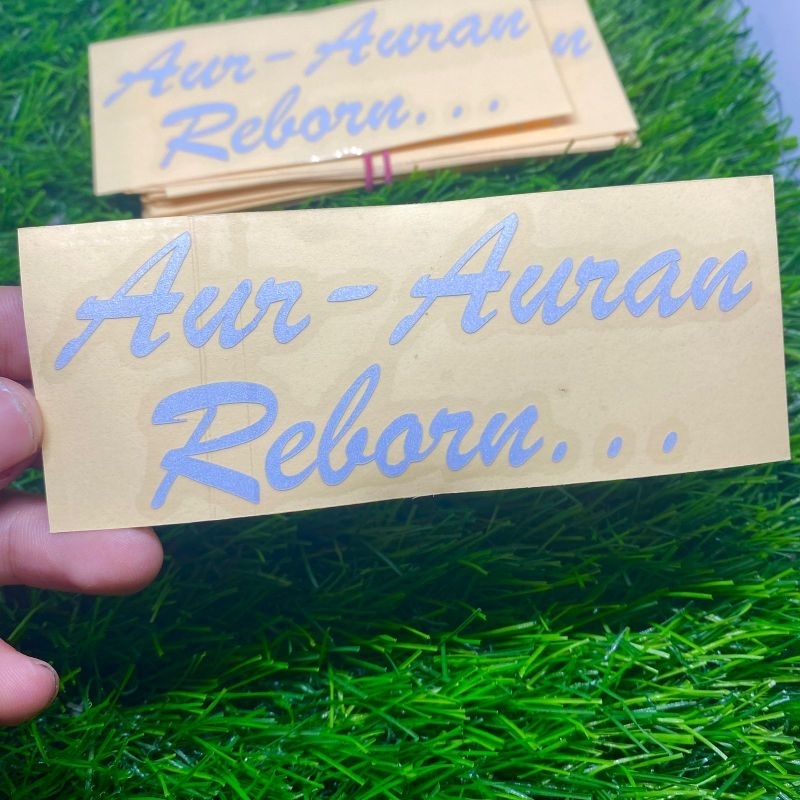 Aur-Auran
n
Reborn...
Aur-Auran
Reborn...